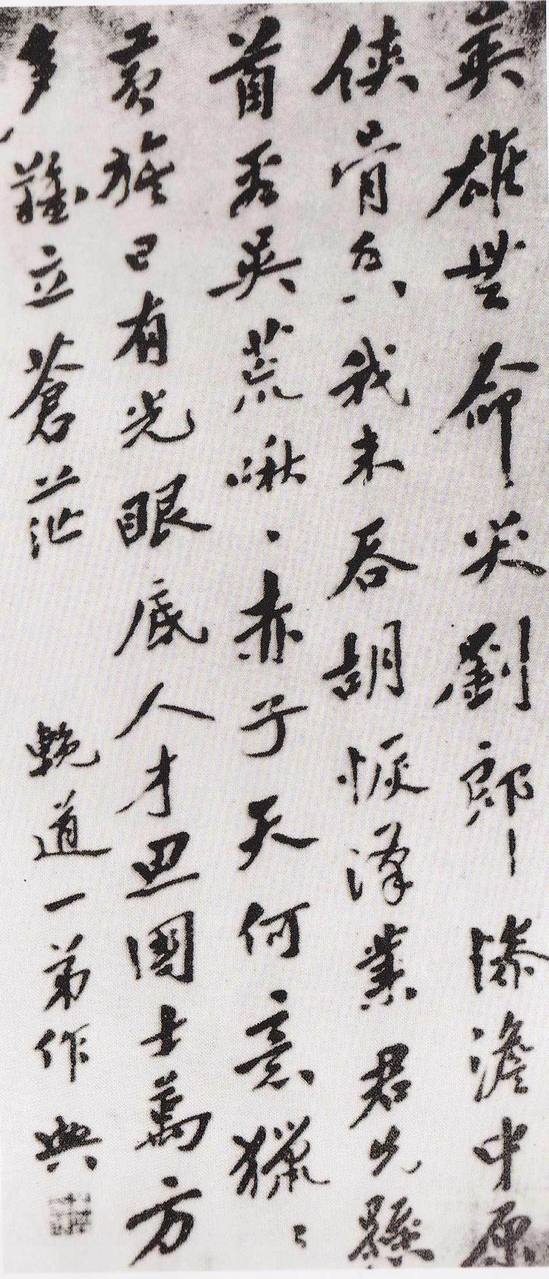 英雄無命哭劉郎慘澹中原
俠骨香我未吞胡恢漢業君先懸
首看吳荒啾〻赤子天何意獵〻
黃旗日有光眼底人才思國士萬方
多難立蒼茫 輓道一弟作 興